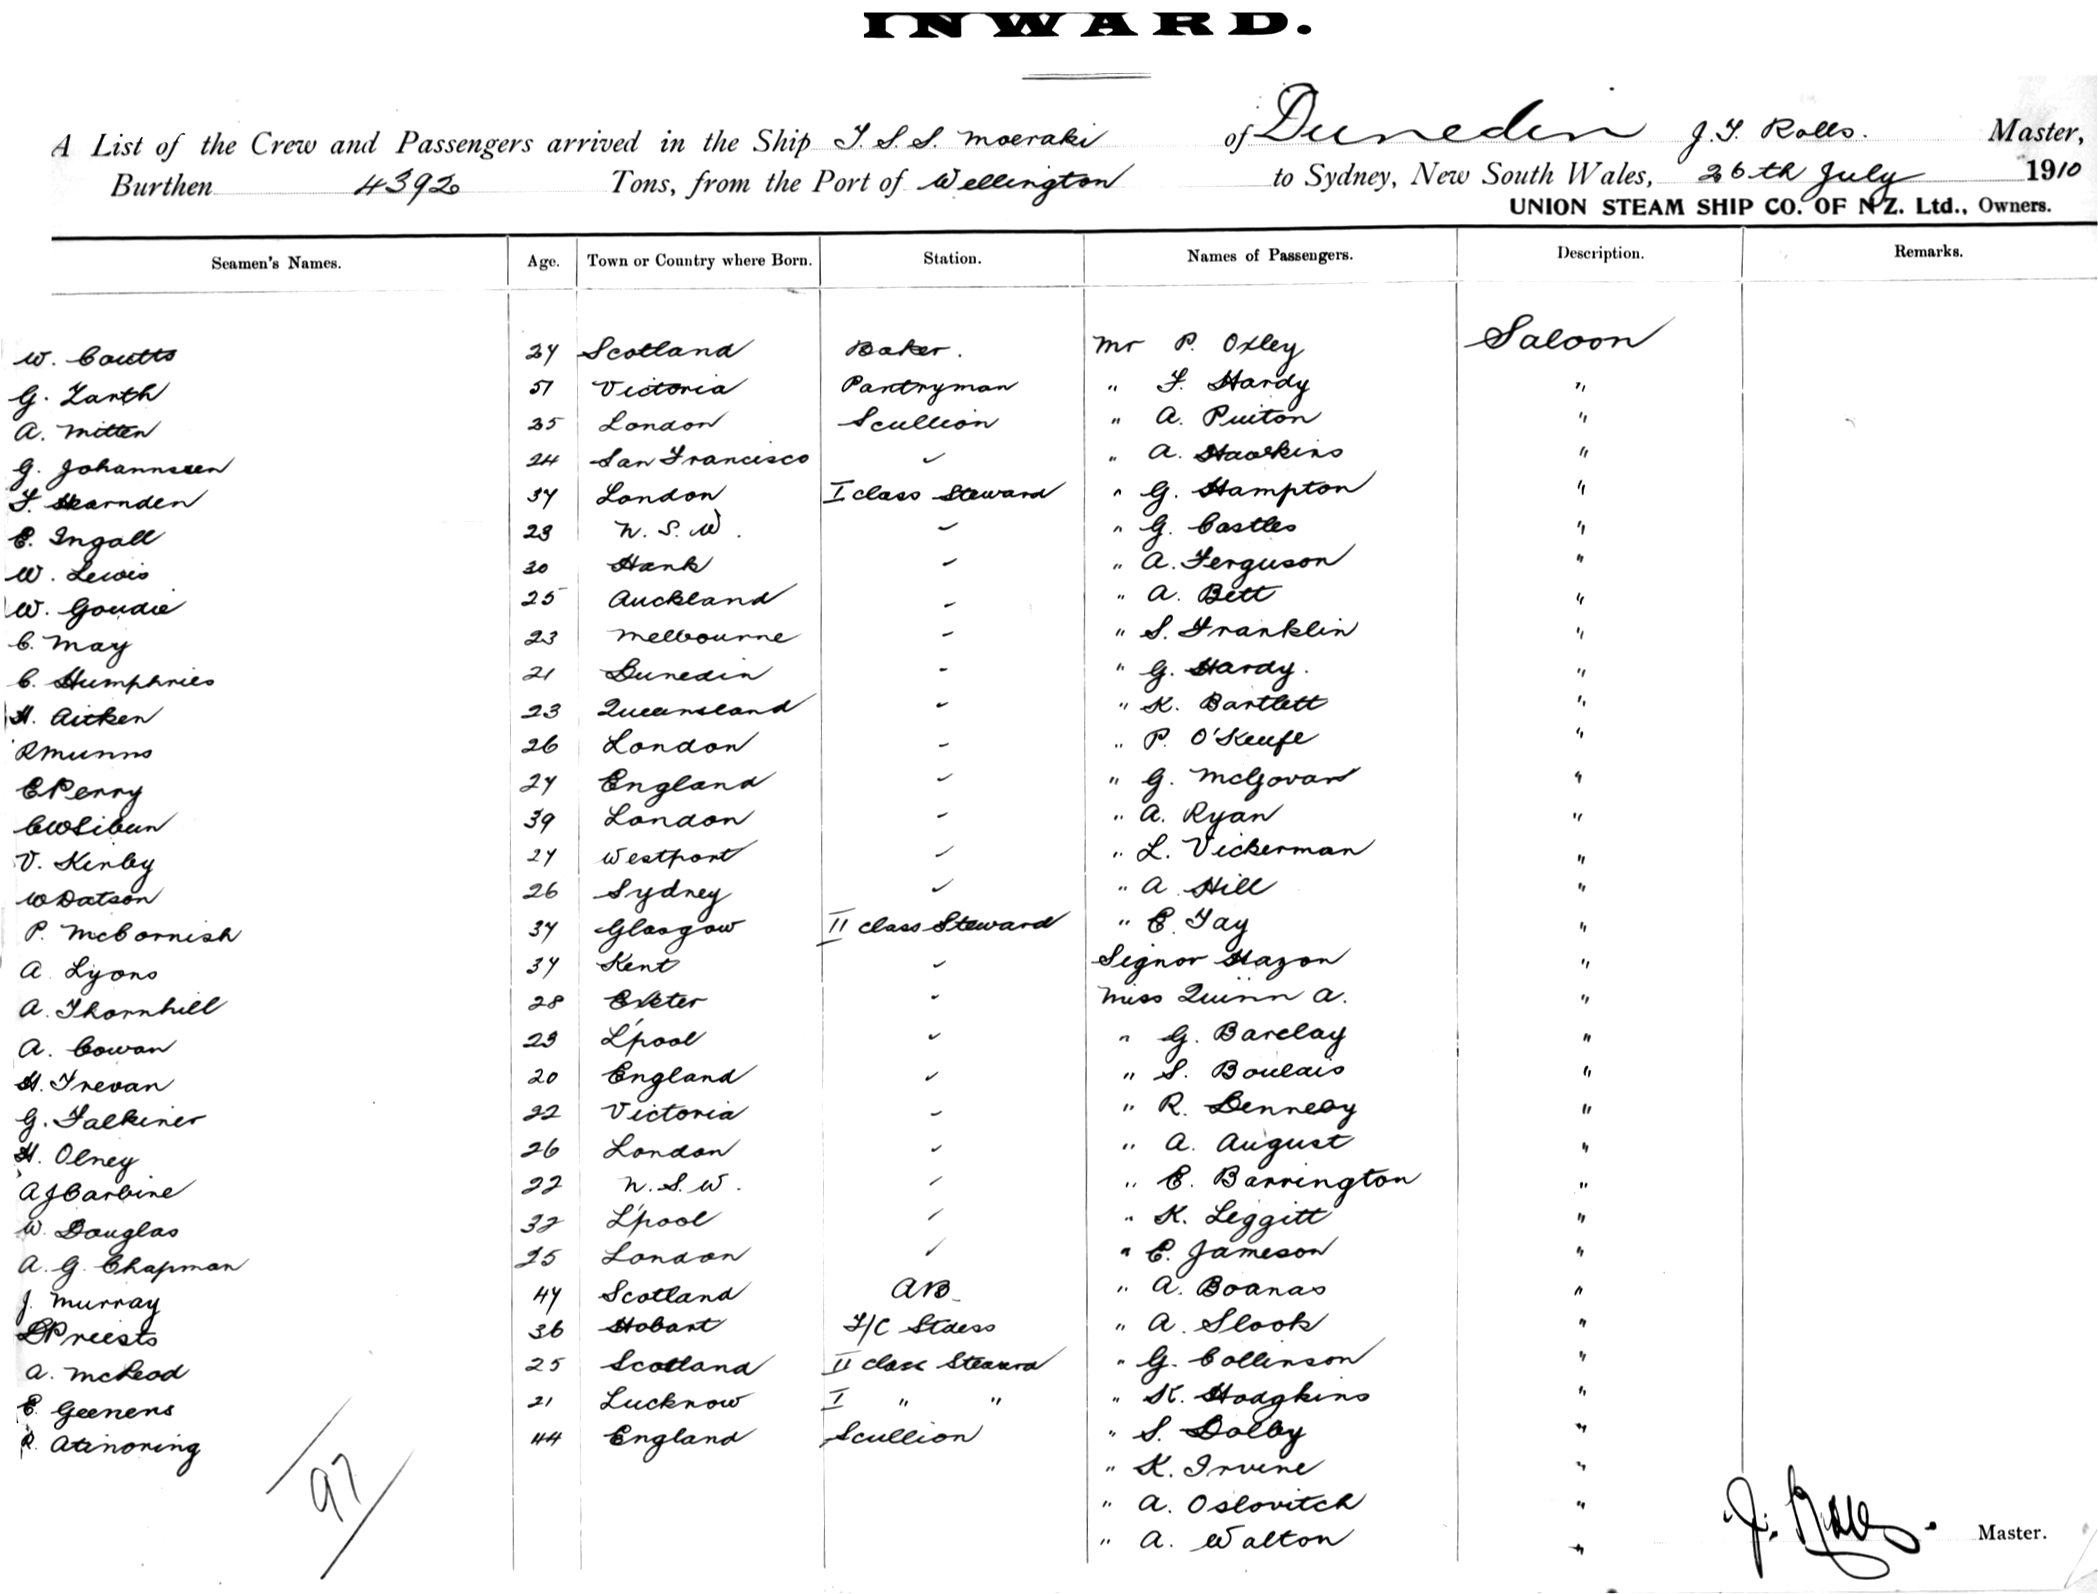 INWARD.
A List of the Crew and Passengers arrived in the Ship T. S. S. Moeraki of Dunedin J. F. Rolls. Master,
Burthen 4392 Tons, from the Port of Wellington to Sydney, New South Wales, 26th July 1910
UNION STEAM SHIP CO. OF N.Z. Ltd., Owners.
Seamen's Names. Age. Town or Country where Born. Station. Names of Passengers. Description. Remarks.
W. Coutts 24 Scotland Baker. Mr P. Oxley Saloon
G. Zarth 51 Victoria Pantryman " F. Hardy "
A. Mitten 25 London Scullion " A. Puiton "
G. Johannseen 24 San Francisco ✓ " A. Hawkins "
F. Hearnden 34 London I class Steward " G. Hampton "
E. Ingall 23 N. S. W. ✓ " G. Castles "
W. Lewis 30 Hank ✓ " A. Ferguson "
W. Goudie 25 Auckland ✓ " A. Bett "
C. May 23 Melbourne ✓ " S. Franklin "
C. Humphries 21 Dunedin ✓ " G. Hardy. "
H. Aitken 23 Queensland ✓ " K. Bartlett "
R Munns 26 London ✓ " P. O'Keefe "
E Perry 24 England ✓ " G. McGovan "
C W Sibun 39 London ✓ " A. Ryan "
V. Kirby 24 Westport ✓ " L. Vickerman "
W Datson 26 Sydney ✓ " A Hill "
P. McCornish 34 Glasgow II class Steward " E. Tay "
A Lyons 34 Kent ✓ Signor Hazon "
A. Thornhill 28 Exeter ✓ Miss Quinn A. "
A. Cowan 23 L'pool ✓ " G. Barclay "
H. Trevan 20 England ✓ " S. Boulais "
G. Falkiner 22 Victoria ✓ " R. Denneby "
H. Olney 26 London ✓ " A. August "
A J Carbine 22 N. S. W. ✓ " E. Barrington "
W. Douglas 32 L'pool ✓ " K. Leggitt "
A. G. Chapman 25 London ✓ " E. Jameson "
J. Murray 44 Scotland AB " A. Boanas "
Priests 36 Hobart F/C Stdess " A. Slook "
A. McLeod 25 Scotland II class Steward " G. Collinson "
E. Geenens 21 Lucknow I " " " K. Hodgkins "
R. Atinoring 44 England Scullion " S. Dolby "
" K. Irvine "
97 " A. Oslovitch "
" A. Walton "
J. Rolls. Master.